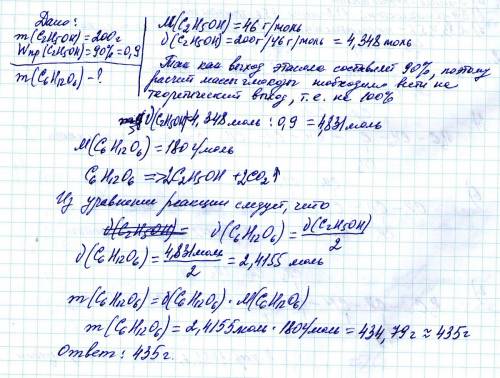 Дано:
m(C₂H₅OH)=200г
Wпр(C₂H₅OH)=90%=0,9
m(C₆H₁₂O₆)-?
M(C₂H₅OH)=46 г/моль
ν(C₂H₅OH)=200г/46 г/моль = 4,348 моль
Так как выход этанола составляет 90%, поэтому
расчет массы глюкозы необходимо вести на
теоретический выход, т.е. на 100%
ν(C₂H₅OH)=4,348 моль : 0,9 = 4,831 моль
M(C₆H₁₂O₆)=180 г/моль
C₆H₁₂O₆ => 2C₂H₅OH + 2CO₂↑
Из уравнения реакции следует, что
ν(C₂H₅OH)= ν(C₆H₁₂O₆)= ν(C₂H₅OH)/2
ν(C₆H₁₂O₆)= 4,831 моль/2 = 2,4155 моль
m(C₆H₁₂O₆)=ν(C₆H₁₂O₆)·M(C₆H₁₂O₆)
m(C₆H₁₂O₆)=2,4155 моль·180 г/моль = 434,79 г ≈ 435 г
Ответ: 435 г.